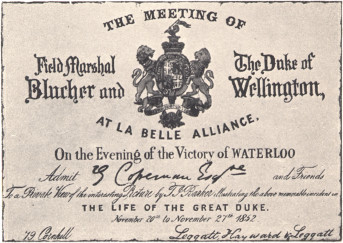 THE MEETING OF
Field Marshal Blucher and The Duke of Wellington,
AT LA BELLE ALLIANCE.
On the Evening of the Victory of WATERLOO
Admit G Copeman Esqre and Friends
To a Private View of the interesting Picture by T. P. Barker illustrating the above memorable incident in
THE LIFE OF THE GREAT DUKE.
November 20th to November 27th 1852
79 Cornhill Leggatt, Hayward & Leggatt